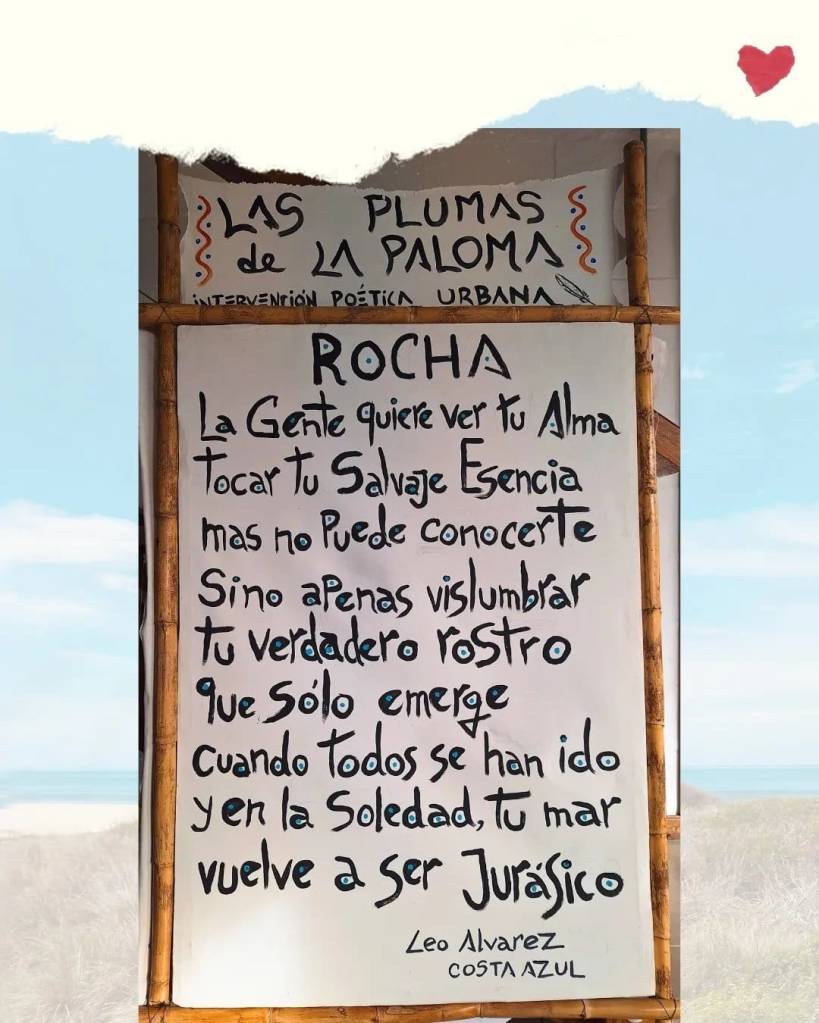 LAS PLUMAS
de LA PALOMA
iNTERVENCIÓN POÉTICA URBANA
ROCHA
La Gente quiere ver tu Alma
tocar tu Salvaje Esencia
mas no Puede conocerte
Sino apenas vislumbrar
tu verdadero rostro
que sólo emerge
cuando todos se han ido
y en la Soledad, tu mar
vuelve a ser Jurásico
Leo Alvarez
COSTA AZUL